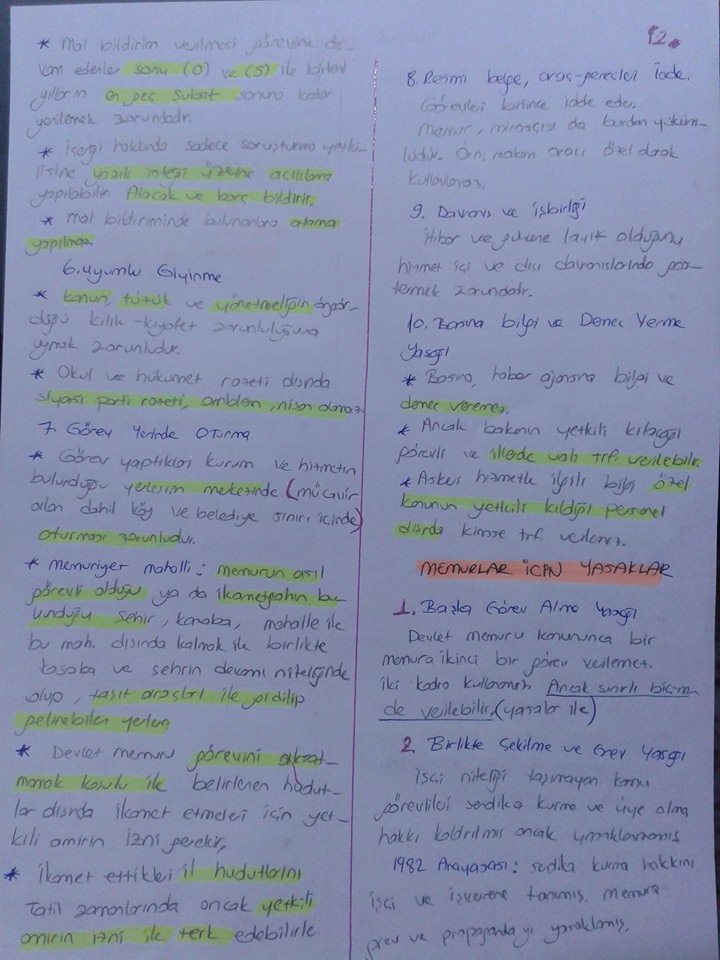 12.
* Mal bildirim verilmesi görevine de-
vam edenler sonu (0) ve (5) ile biten
yılların en geç şubat sonuna kadar
yenilemek zorundadır.
* içeriği hakkında sadece soruşturma yetki-
lisine yazılı isteği üzerine açıklama
yapılabilir. Alacak ve borç bildirir.
* mal bildiriminde bulunanlara atama
yapılmaz.
6. uyumlu Giyinme
* kanun, tüzük ve yönetmeliğin öngör-
düğü kılık-kıyafet zorunluluğuna
uymak zorunludur.
* Okul ve hükümet rozeti dışında
siyasi parti rozeti, amblem, nişan olamaz
7. Görev Yerinde Oturma
* Görev yaptıkları kurum ve hizmetin
bulunduğu yerleşim merkezinde (mücavir
alan dahil köy ve belediye sınırı içinde)
oturması zorunludur.
* memuriyet mahalli: memurun asıl
görevli olduğu ya da ikametgahın bu
unduğu şehir, kasaba, mahalle ile
bu mah. dışında kalmak ile birlikte
kasaba ve şehrin devamı niteliğinde
olup, taşıt araçları ile gidilip
gelinebilen yerler
* Devlet memuru görevini aksat-
mamak koşulu ile belirlenen hudut-
lar dışında ikamet etmeleri için yet-
kili amirin izni gerekir,
* ikamet ettikleri il hudutlarını
Tatil zamanlarında ancak yetkili
amirin izni ile terk edebilirler
8. Resmi belge, araç-gereçleri iade.
Görevleri bitince iade eder.
memur, mirasçısı da bundan yüküm-
lüdür. Örn; makam aracı özel olarak
kullanılamaz.
9. Davranış ve işbirliği
itibar ve güvene layık olduğunu
hizmet içi ve dışı davranışlarında gös-
termek zorundadır.
10. Basına bilgi ve Demeç Verme
yasağı
* Basına, haber ajansına bilgi ve
demeç veremez.
* Ancak bakanın yetkili kılacağı
görevli ve illerde vali trf. verilebilir.
* Askeri hizmetle ilgili bilgi özel
kanunun yetkili kıldığı personel
dışında kimse trf. verilemez.
MEMURLAR İÇİN YASAKLAR
1. Başka Görev Alma Yasağı
Devlet memuru kanununca bir
memura ikinci bir görev verilemez.
iki kadro kullanamaz. Ancak sınırlı biçim-
de verilebilir. (yasalar ile)
2 Birlikte Çekilme ve Grev Yasağı
işçi niteliği taşımayan kamu
görevlileri sendika kurma ve üye olma
hakkı kaldırılmış ancak yasaklanmamış
1982 Anayasası: sendika kurma hakkını
işçi ve işverene tanımış. memura
grev ve propagandayı yasaklamış.